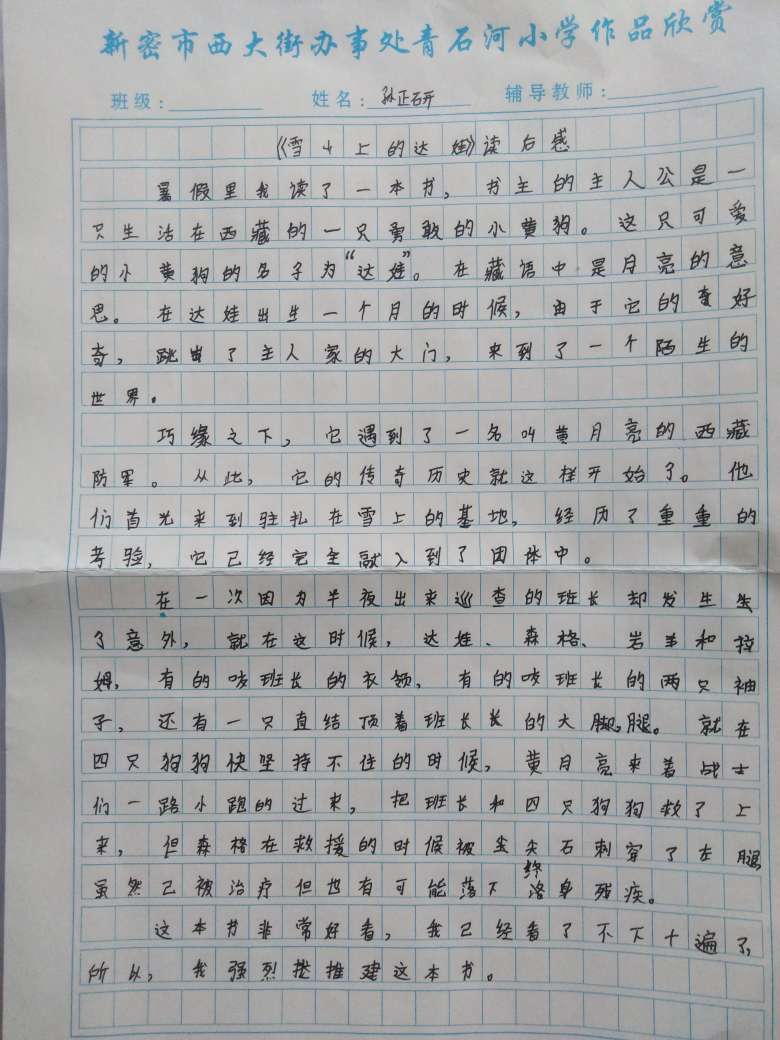 新密市西大街办事处青石河小学作品欣赏
班级：　姓名：孙正研　辅导教师：
《雪山上的达娃》读后感
暑假里我读了一本书，书主的主人公是一
只生活在西藏的一只勇敢的小黄狗。这只可爱
的小黄狗的名子为“达娃”。在藏语中是月亮的意
思。在达娃出生一个月的时候，由于它的好
奇，跳出了主人家的大门，来到了一个陌生的
世界。
巧缘之下，它遇到了一名叫黄月亮的西藏
防军。从此，它的传奇历史就这样开始了。他
们首先来到驻扎在雪上的基地，经历了重重的
考验，它已经完主融入到了团体中。
在一次因为半夜出来巡查的班长却发生生
了意外，就在这时候，达娃、森格、岩羊和拉
姆，有的咬班长的衣领，有的咬班长的两只袖
子，还有一只直结顶着班长长的大脚腿。就在
四只狗狗快坚持不住的时候，黄月亮来着战士
们一路小跑的过来，把班长和四只狗狗救了上
来，但森格在救援的时候被尖尖石刺穿了左腿
虽然已被治疗但也有可能落下终身残疾。
这本书非常好看，我已经看了不下十遍了，
所以，我强烈推建这本书。